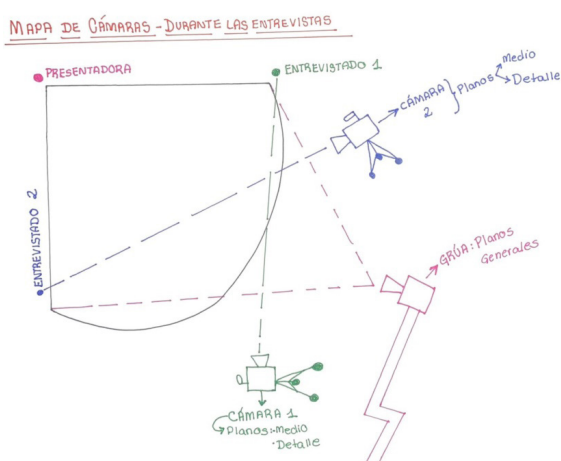 MAPA DE CÁMARAS - DURANTE LAS ENTREVISTAS
PRESENTADORA
ENTREVISTADO 1
CÁMARA
2
Planos
Medio
Detalle
ENTREVISTADO 2
GRÚA: Planos
Generales
CÁMARA 1
Planos: - Medio
· Detalle